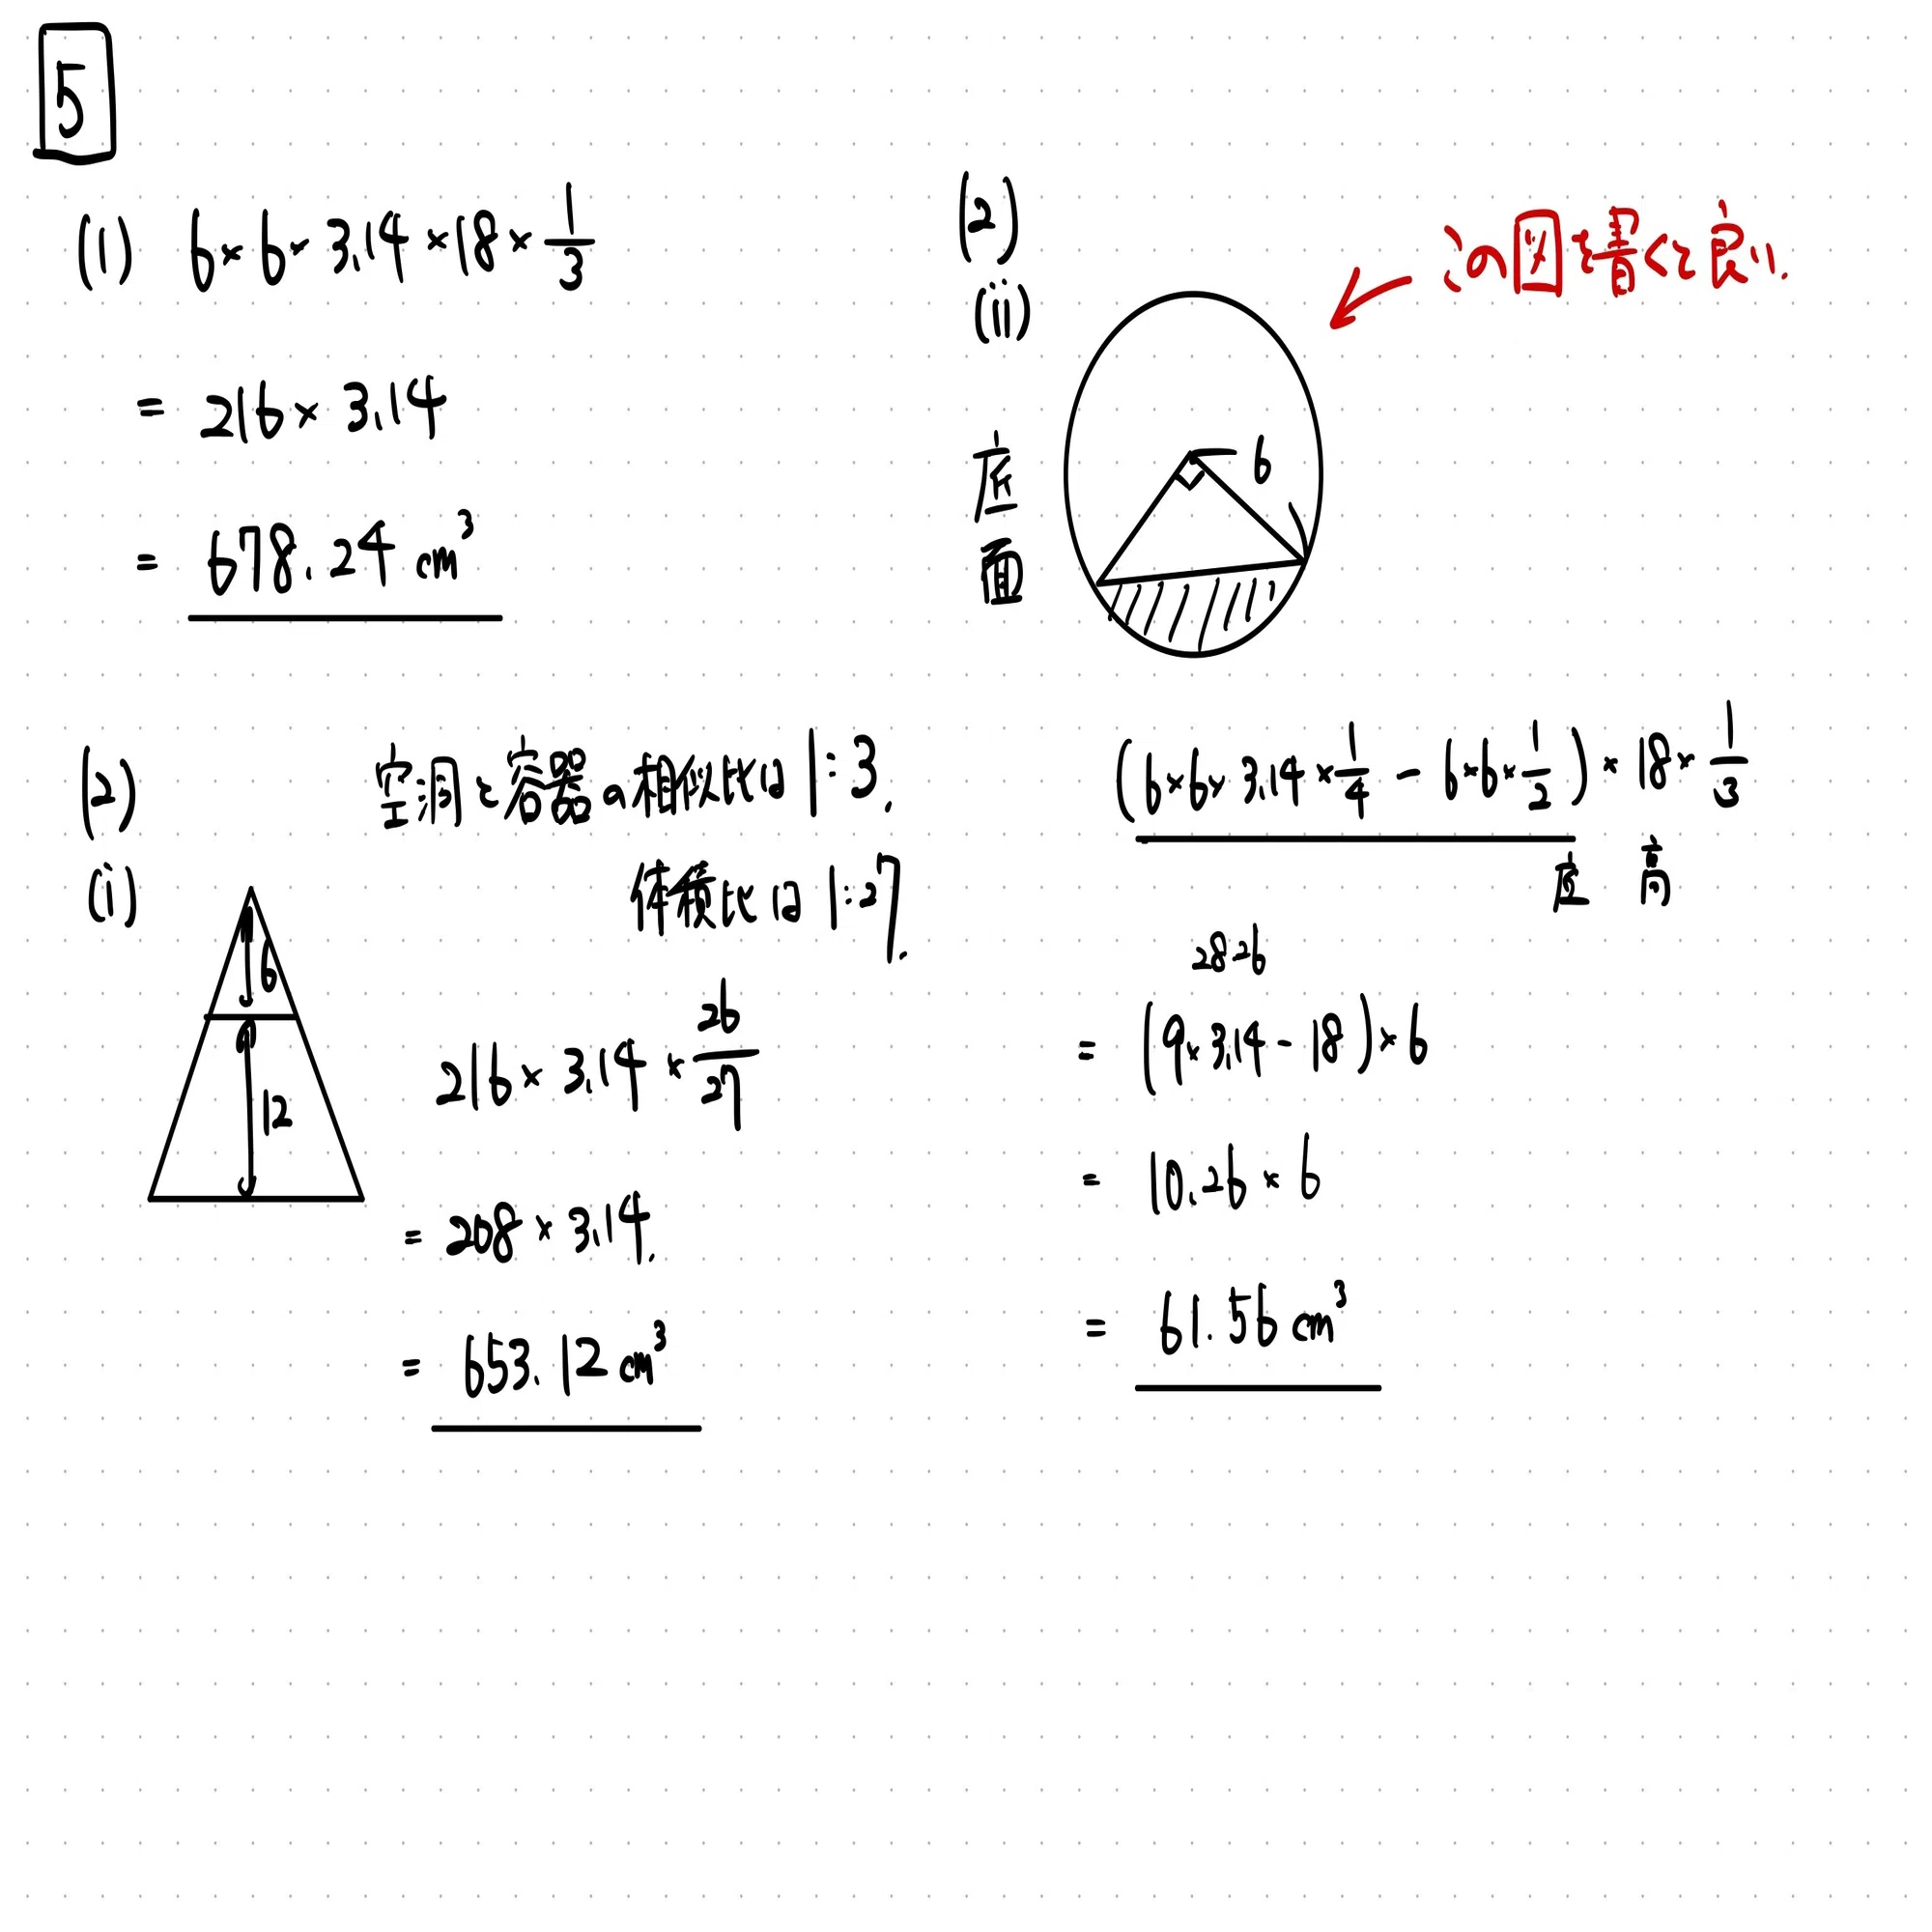 5
(1) 6×6×3.14×18×1/3
= 216×3.14
= 678.24 cm³
(2)
(i)
空洞と容器の相似比は1:3.
体積比は1:27.
6
12
216×3.14×26/27
= 208×3.14.
= 653.12 cm³
(2)
(ii)
この図を書くと良い.
底面
6
(6×6×3.14×1/4 - 6×6×1/2)×18×1/3
底 高
28.26
= (9×3.14-18)×6
= 10.26×6
= 61.56 cm³